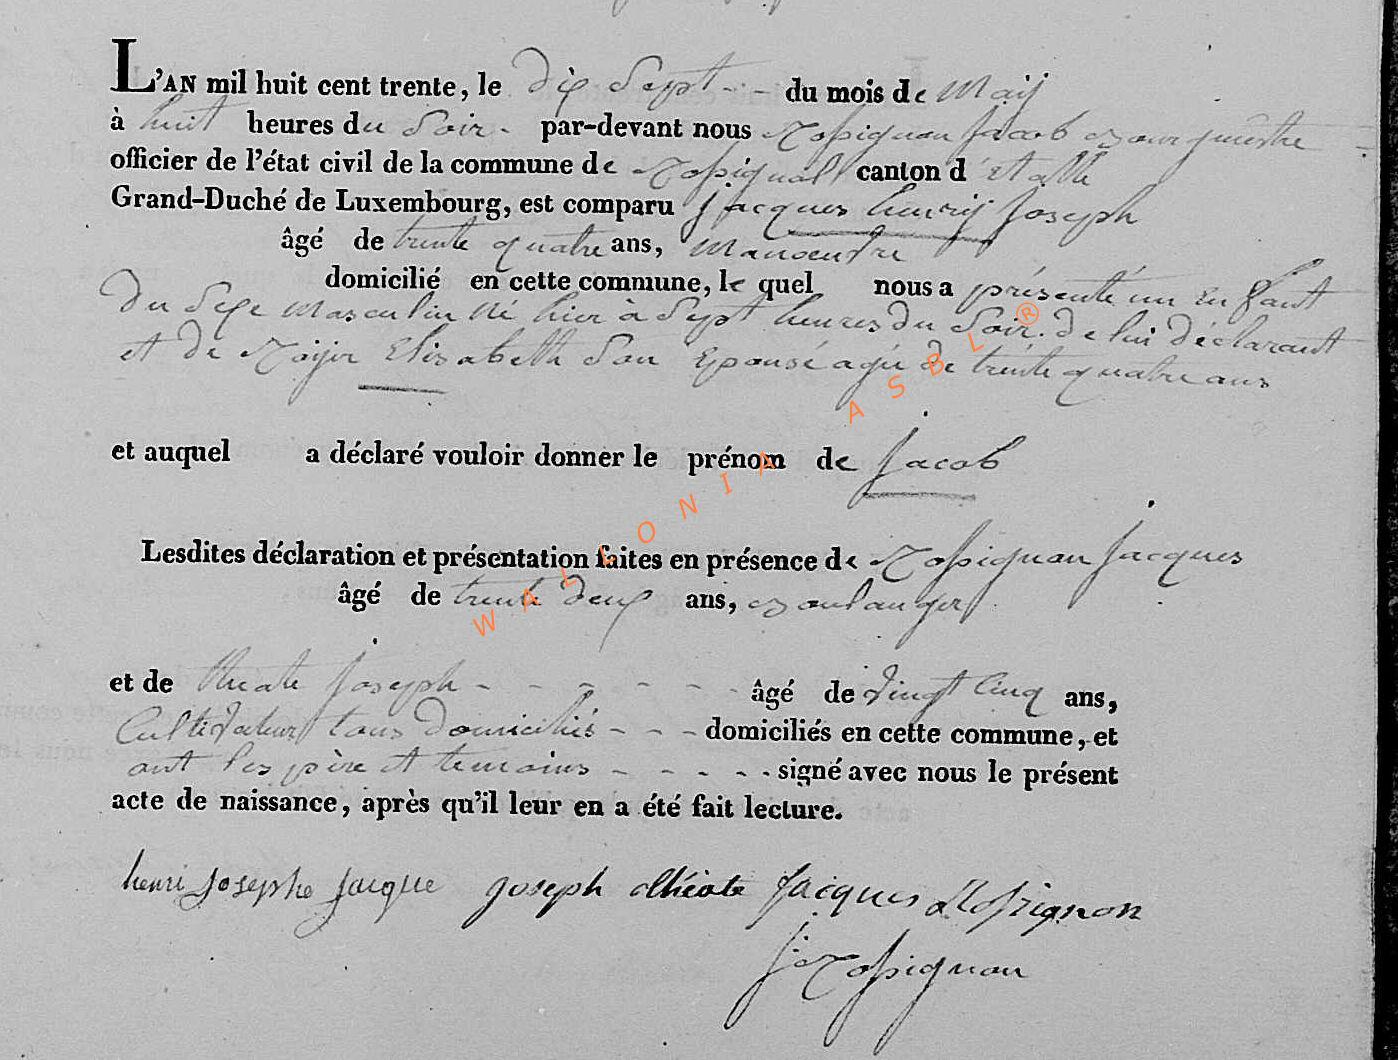 L'AN mil huit cent trente, le dix Sept - - du mois de Maÿ
à huit heures du Soir - par-devant nous Rossignon Jacob Bourguestre
officier de l'état civil de la commune de Rossignol canton d'Etalle
Grand-Duché de Luxembourg, est comparu Jacques henrÿ Joseph
âgé de trente quatre ans, Manoeuvre
domicilié en cette commune, le quel nous a présenté un Enfant
du Sexe Masculin Né hier à Sept heures du Soir. de lui déclarant
et de Elisabeth Son Epouse agée de trente quatre ans
et auquel a déclaré vouloir donner le prénom de Jacob
Lesdites déclaration et présentation faites en présence de Rossignon Jacques
âgé de trente deux ans, Boulanger
et de theate Joseph - - - - - - âgé de Vingt Cinq ans,
Cultivateur tous Domiciliés - - - domiciliés en cette commune, et
ont les père et temoins - - - - - signé avec nous le présent
acte de naissance, après qu'il leur en a été fait lecture.
henri Josephe Jacque Joseph Jacques Rossignon
J. Rossignon
WALLONIA ASBL ®